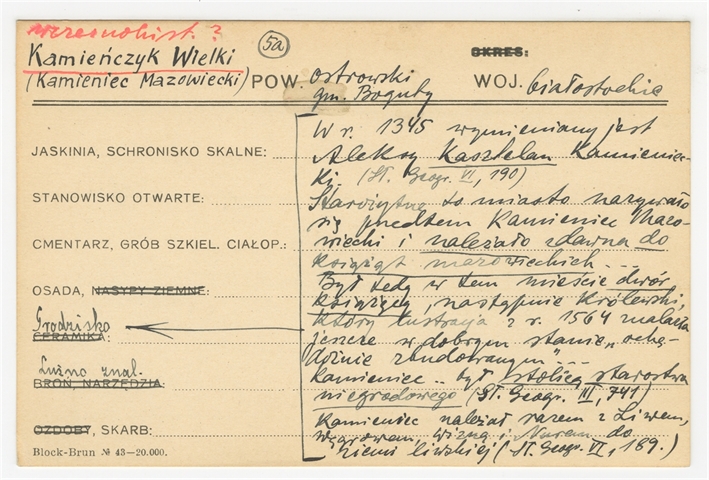 wczesnohist. ?
Kamieńczyk Wielki
(Kamieniec Mazowiecki)
5a
POW. ostrowski
gm. Boguty
OKRES:
WOJ. białostockie
JASKINIA, SCHRONISKO SKALNE:
STANOWISKO OTWARTE:
CMENTARZ, GRÓB SZKIEL. CIAŁOP.:
OSADA, NASYPY ZIEMNE:
Grodzisko
CERAMIKA:
Luźno znal.
BROŃ, NARZĘDZIA:
OZDOBY, SKARB:
Block-Brun № 43—20.000.
W r. 1345 wymieniany jest
Aleksy Kasztelan Kamieniec-
ki (Sł. Geogr. VI, 190)
Starożytne to miasto nazywało
się przedtem Kamieniec Mazo-
wiecki i należało zdawna do
książąt mazowieckich ...
Był tedy w tem mieście dwór
książęcy, następnie królewski,
który lustracja z r. 1564 znalazła
jeszcze w dobrym stanie „ochę-
dożnie zbudowanym" ...
Kamieniec .. był stolicą starostwa
niegrodowego (Sł. Geogr. III, 741)
Kamieniec należał razem z Liwem,
Węgrowem, Wizną i Nurem do
ziemi liwskiej (Sł. Geogr. VI, 189.)